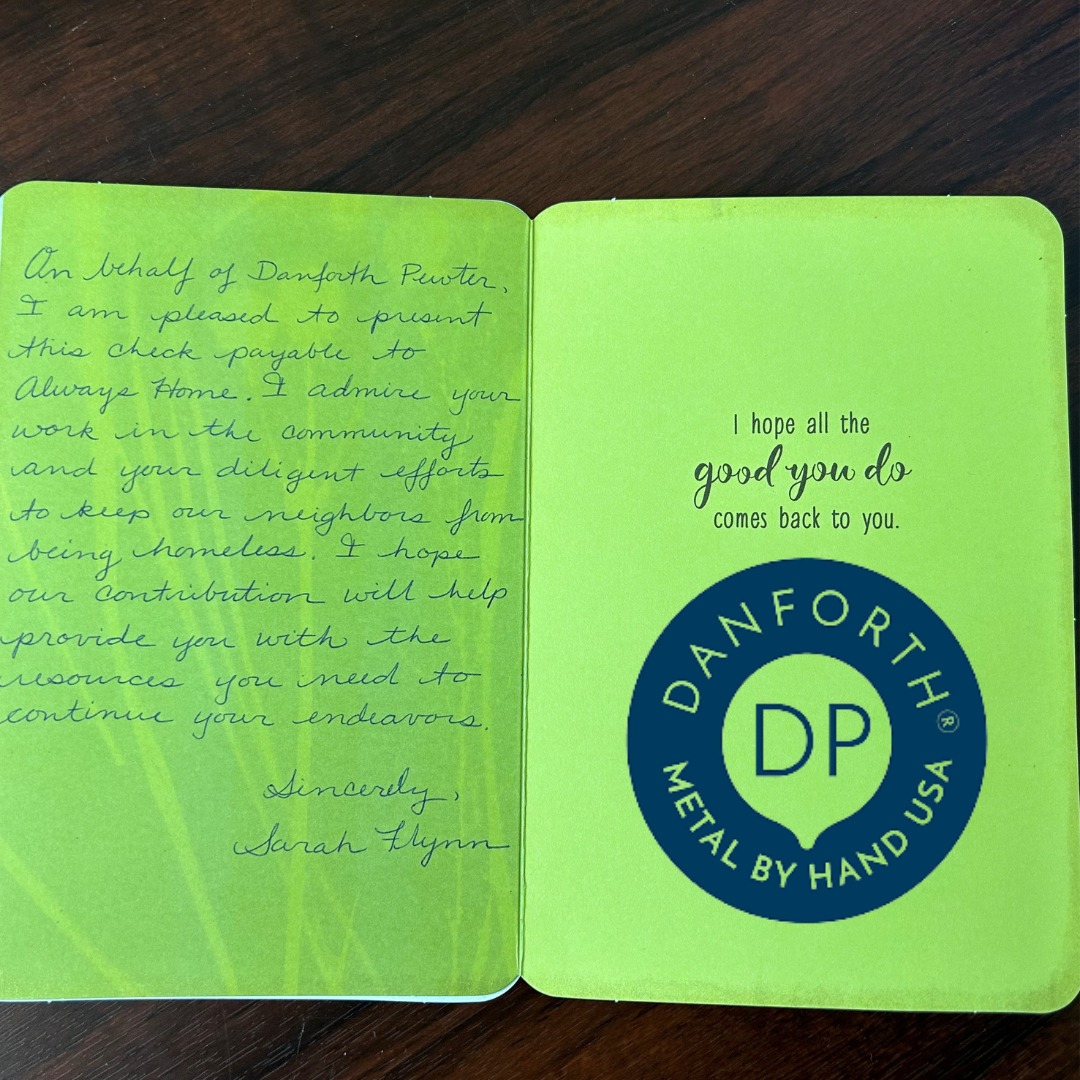 On behalf of Danforth Pewter,
I am pleased to present
this check payable to
Always Home. I admire your
work in the community
and your diligent efforts
to keep our neighbors from
being homeless. I hope
our contribution will help
provide you with the
resources you need to
continue your endeavors.
Sincerely,
Sarah Flynn
I hope all the
good you do
comes back to you.
DANFORTH®
DP
METAL BY HAND USA